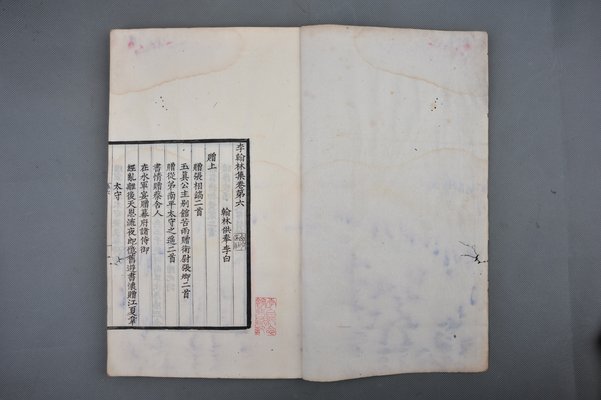 李翰林集卷第六
翰林供奉李白
贈上
贈張相鎬二首
玉真公主別館苦雨贈衛尉張卿二首
贈從弟南平太守之遙二首
書情贈蔡舍人
在水軍宴贈幕府諸侍御
經亂離後天恩流夜郎憶舊遊書懷贈江夏韋
太守